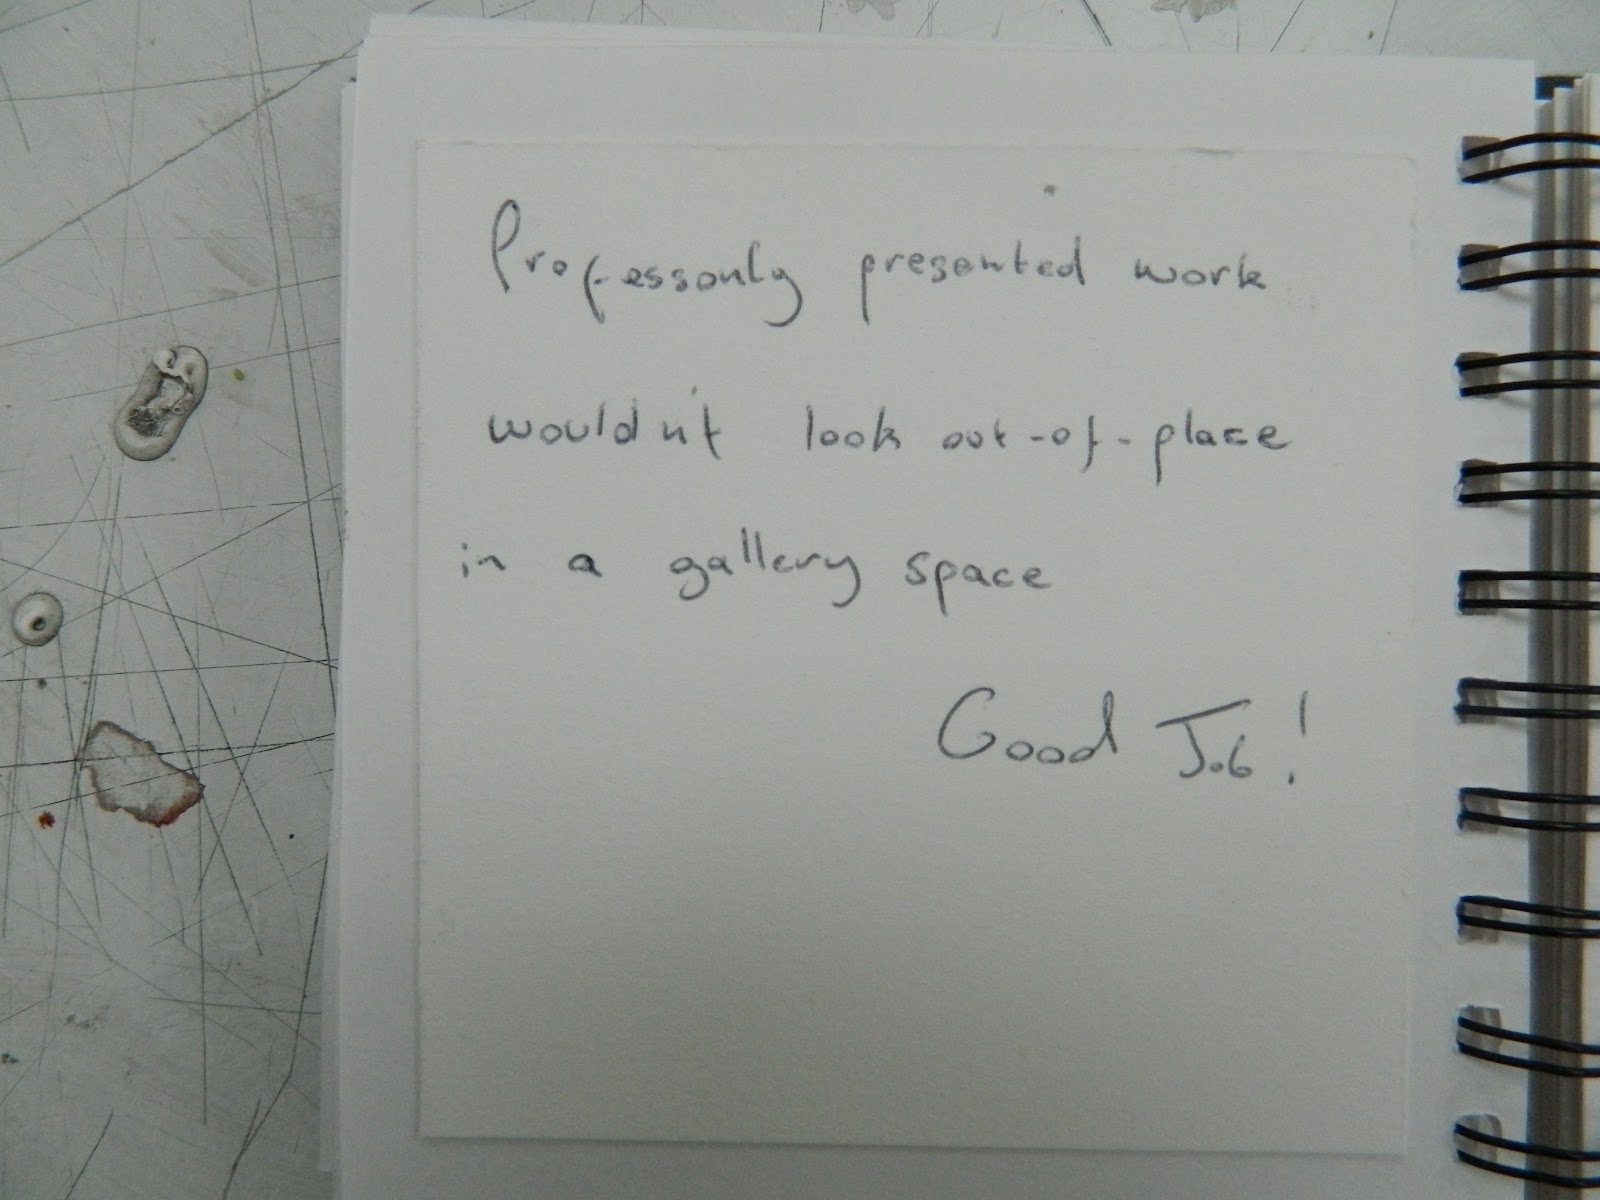 Professonly presented work
wouldn't look out-of-place
in a gallery space
Good Job!